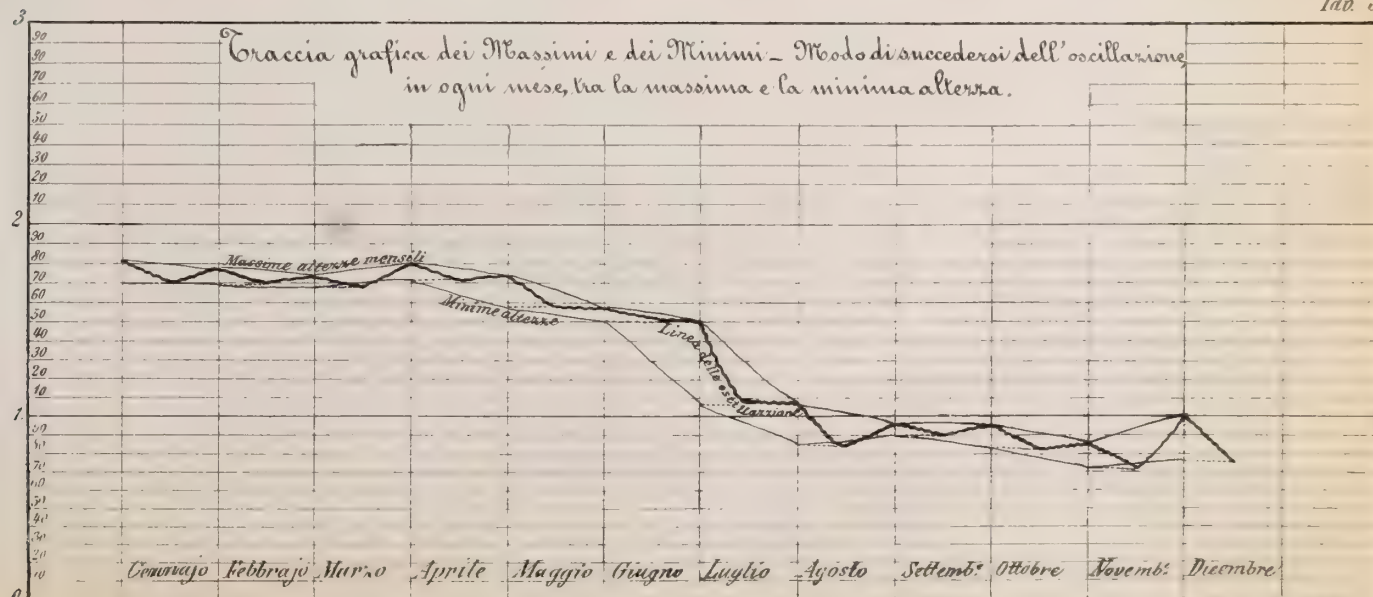 Tav.
3
Traccia grafica dei Massimi e dei Minimi - Modo di succedersi dell'oscillazione
in ogni mese, tra la massima e la minima altezza.
90
80
70
50
40
30
20
10
2
90
80
70
60
50
40
30
20
10
1
90
80
70
60
50
40
30
20
10
0
Massime altezze mensili
Minime altezze
Linea delle oscillazioni
Gennajo Febbrajo Marzo Aprile Maggio Giugno Luglio Agosto Settemb.e Ottobre Novemb.e Dicembre